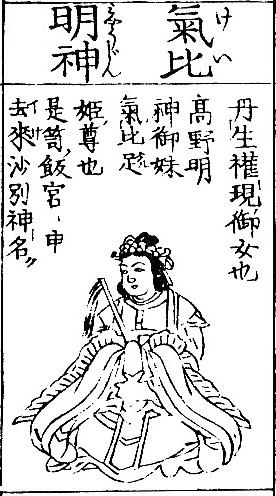 氣比
けい
明神
みょうじん
丹生權現御女也
高野明
神御妹
氣比跽
姫尊也
是笥飯宮ヽ申
去來沙別神名〃